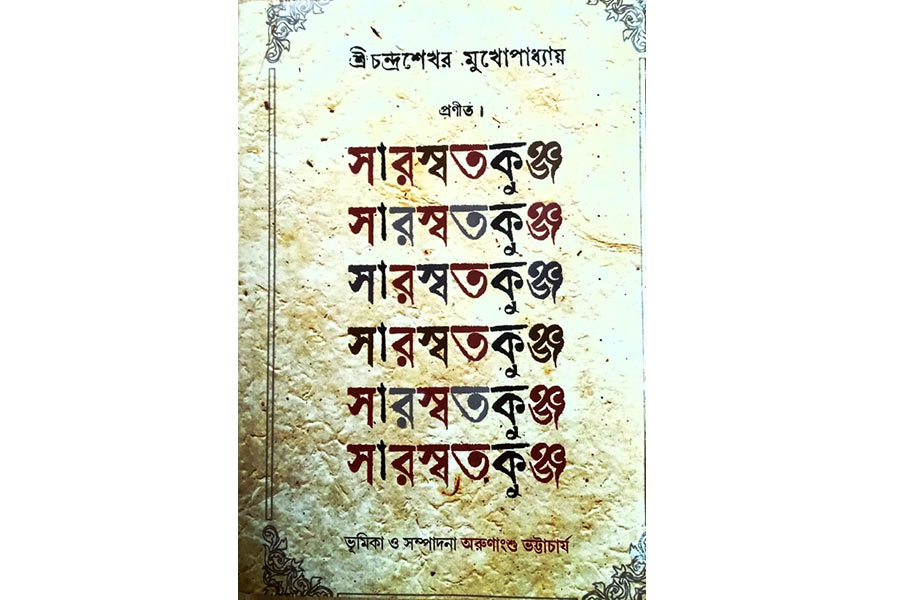 শ্রীচন্দ্রশেখর মুখোপাধ্যায়
প্রণীত।
সারস্বতকুঞ্জ
সারস্বতকুঞ্জ
সারস্বতকুঞ্জ
সারস্বতকুঞ্জ
সারস্বতকুঞ্জ
সারস্বতকুঞ্জ
ভূমিকা ও সম্পাদনা অরুণাংশু ভট্টাচার্য